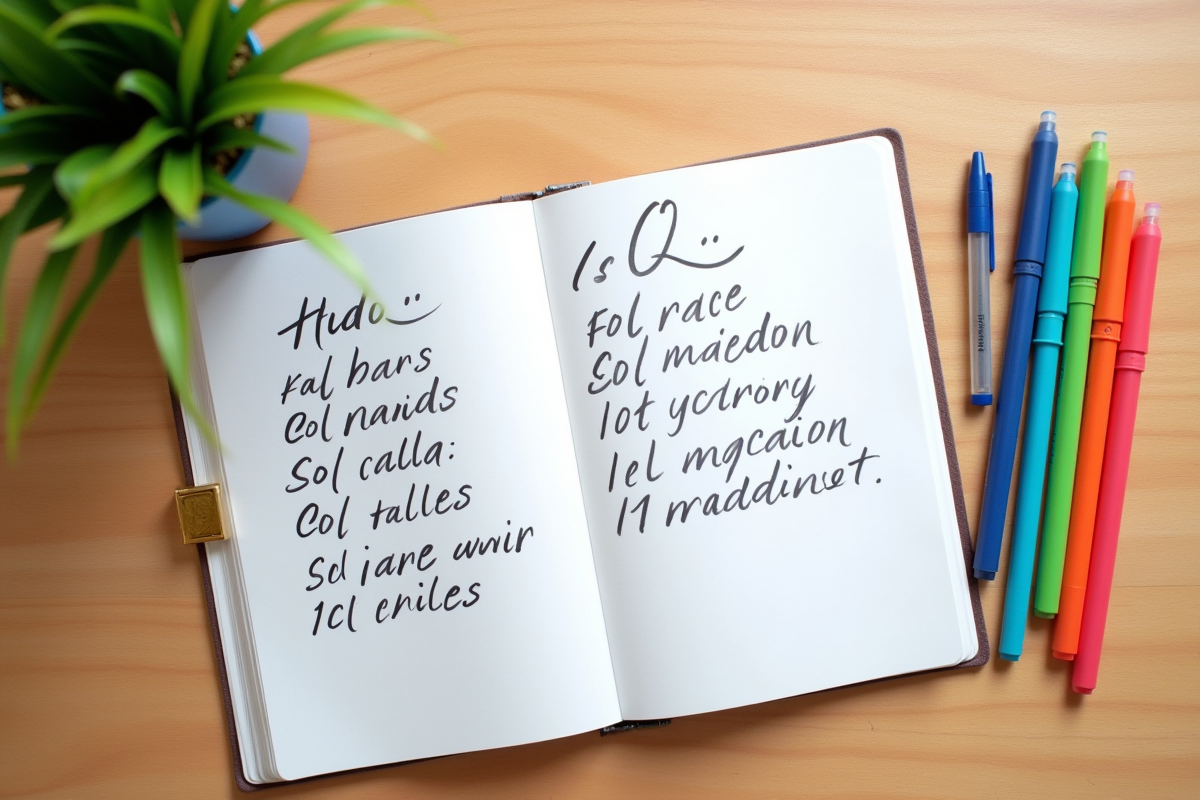 Hudo
Kal bars
Col nanids
Sol calla:
Col talles
Sd jare wwir
1cl eniles
Is Q
Fol race
Sol maiedon
lot yctrory
lel mqcaion
11 maddinset.